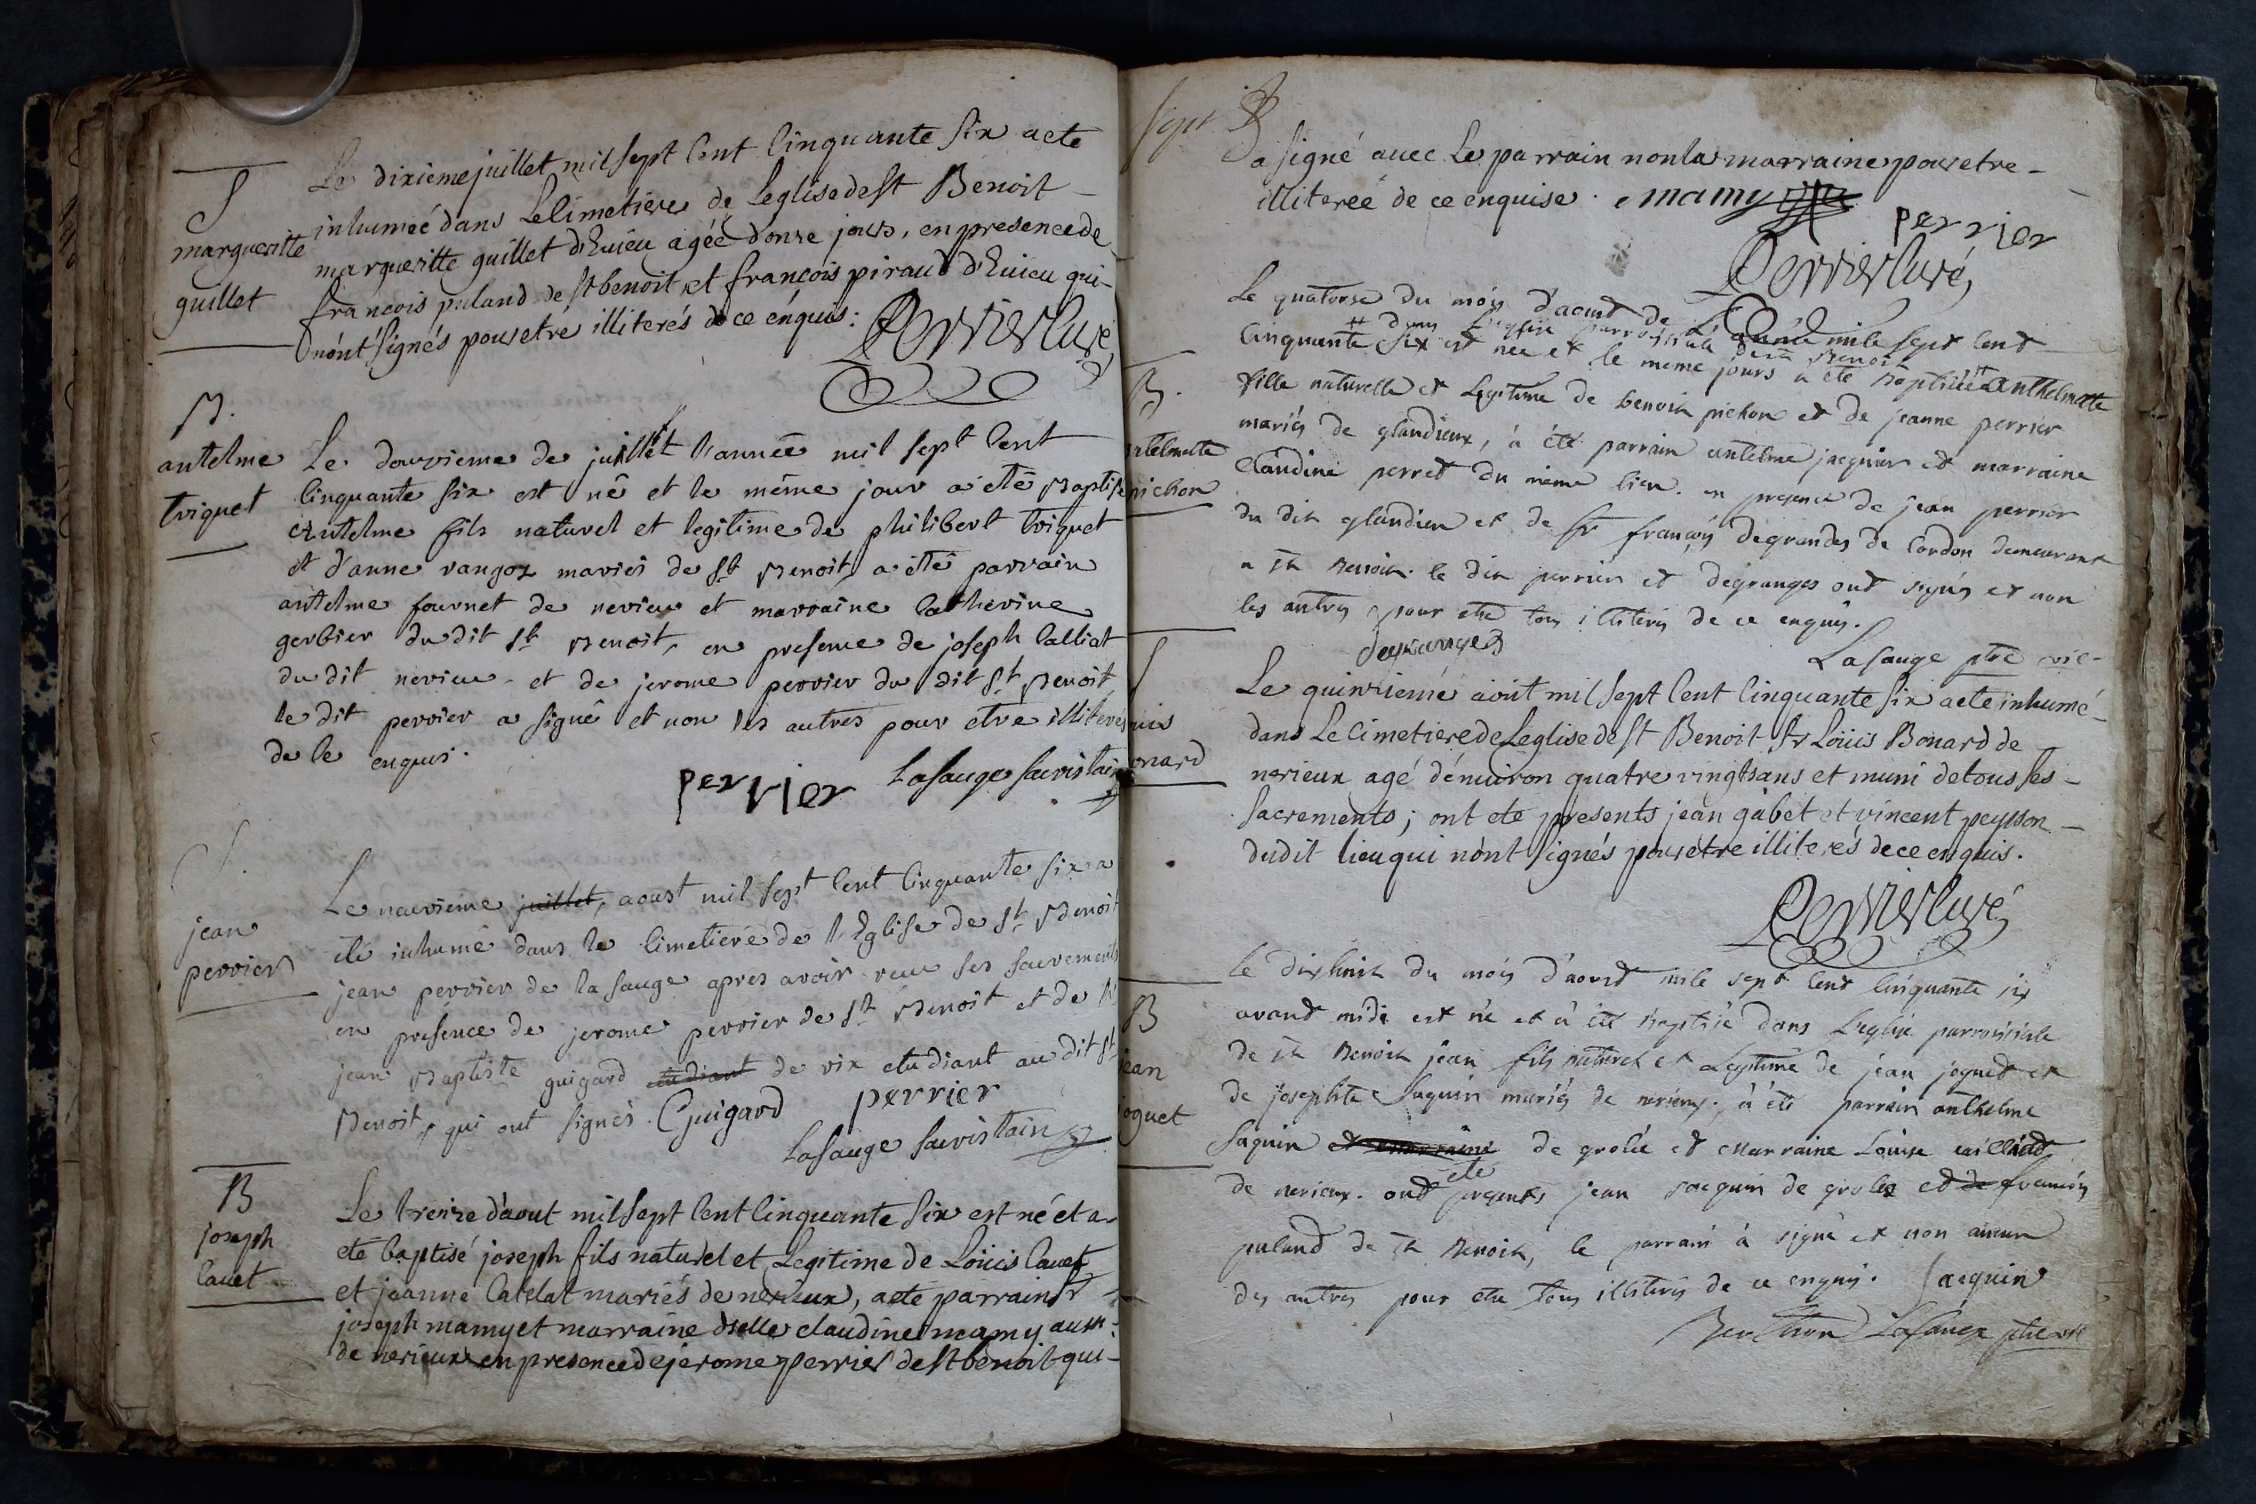 S
margueritte
guillet
Le dixieme juillet mil sept cent cinquante six a ete
inhumeé dans Le cimetiere de Leglise de st Benoit
margueritte guillet d'Euieu agée d'onze jours, en presence de
francois puland de st benoit et françois piraud d'Euieu qui
nónt signés pour etré illiterés de ce énquis:
Perrier curé
B.
antelme
triquet
Le douzieme de juillet l'anneê mil sept cent
cinquante six est nê et le même jour a étê Baptisé
antelme fils naturel et legitime de philibert triquet
et d'anne rangoz mariés de st Benoit, a étté parrain
antelme fournet de nerieu et marraine catherine
gerbier du dit st Benoit, en presence de joseph calliat
du dit nerieu et de jerome perrier du dit st Benoit
le dit perrier a signê et non les autres pour etre illiterés
de ce enquis.
perrier Lasauge sacristain
S.
jean
perrier
Le neuvieme juillet, aoust mil sept cent cinquante six a
été inhumê dans le cimetiere de l'Eglise de st Benoit
jean perrier de la sauge apres avoir reçu ses sacrements
en presence de jerome perrier de st Benoit et de
jean Baptiste guigard etudiant de vix etudiant au dit st
Benoit, qui ont signés. Guigard perrier
Lasauge sacristain
B
joseph
cauet
Le treize d'aout mil sept cent cinquante six est né et a
ete baptisé joseph fils naturel et Legitime de Loüis cauet
et jeanne catelat mariés de nerieux, a eté parrain sr
joseph mamy et marraine dselle claudine mamy aussi
de nerieux en presence de jerome perrier de st benoit qui
sept
a signé auec Le parrain non la marraine pour etre
illitereé de ce enquise. mamy
perrier
Perrier curé
B.
antelmette
pichon
Le quatorse du mois d'aoust de L'année mile sept cent
dans L'église parroissiale de st Benoit
cinquante six est née et le meme jours à été baptisée anthelmette
fille naturelle et Legitime de benoit pichon et de jeanne perrier
mariés de glandieux, à été parrain antelme jacquier et marraine
Claudine perret du même lieu. en presence de jean perrier
du dit glandieu et de sr françois degranges de Cordon demeurant
a st Benoit. le dit perrier et degranges ont signés et non
les autres pour etre tous illiterés de ce enquis.
degranges
Lasauge ptre vic
S
Louis
Bonard
Le quinzieme aout mil sept cent cinquante six a ete inhumé
dans Le Cimetiere de Leglise de st Benoit sr Loüis Bonard de
nerieux agé dénuiron quatre vingts ans et muni de tous ses
sacrements; ont ete presents jean gabet et vincent peysson
dudit lieu qui nónt signés pour etre illiterés de ce enquis.
Perrier curé
B
jean
joguet
Le dixhuit du mois d'aoust mile sept cent cinquante six
avant midi est né et à été baptisé dans L'eglise parroissiale
de st Benoit jean fils naturel et Legitime de jean joguet et
de josephte saquin mariés de nerieux, à été parrain anthelme
saquin et marraine de grolée et marraine Louise
de nerieux. ont été presents jean Jacquin de grolee et de françois
puland de st Benoit, le parrain à signé et non aucun
des autres pour etre tous illiterés de ce enquis. Jacquin
Berthon Lasauge ptre vic